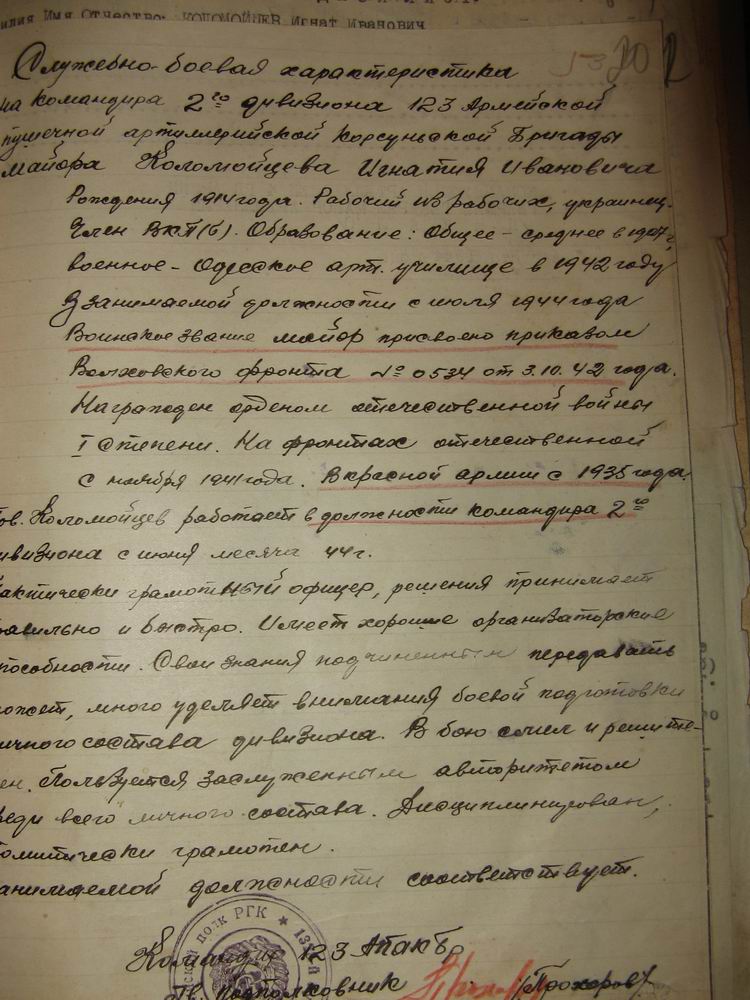 милия Имя Отчество: КОЛОМОЙЦЕВ Игнат Иванович
53 202
Служебно-боевая характеристика
на командира 2го дивизиона 123 Армейской
пушечной артиллерийской Корсуньской Бригады
майора Коломойцева Игнатия Ивановича
Рождения 1914 года. Рабочий из рабочих, украинец.
Член ВКП(б). Образование: Общее - среднее в 1937 г,
военное - Одесское арт. училище в 1942 году
В занимаемой должности с июля 1944 года
Воинское звание майор присвоено приказом
Волховского фронта № 0534 от 3.10.42 года.
Награжден орденом отечественной войны
I степени. На фронтах отечественной
с ноября 1941 года. В красной армии с 1935 года.
ов. Коломойцев работает в должности командира 2го
ивизиона с июня месяца 44 г.
актически грамотный офицер, решения принимает
равильно и быстро. Имеет хорошие организаторские
пособности. Свои знания подчиненным передавать
может, много уделяет внимания боевой подготовки
ичного состава дивизиона. В бою смел и решите-
ен. Пользуется заслуженным авторитетом
реди всего личного состава. Дисциплинирован,
олитически грамотен.
анимаемой должности соответствует.
ский полк РГК ★
Командир 123 Апакбр
Гв. подполковник /Прохоров/